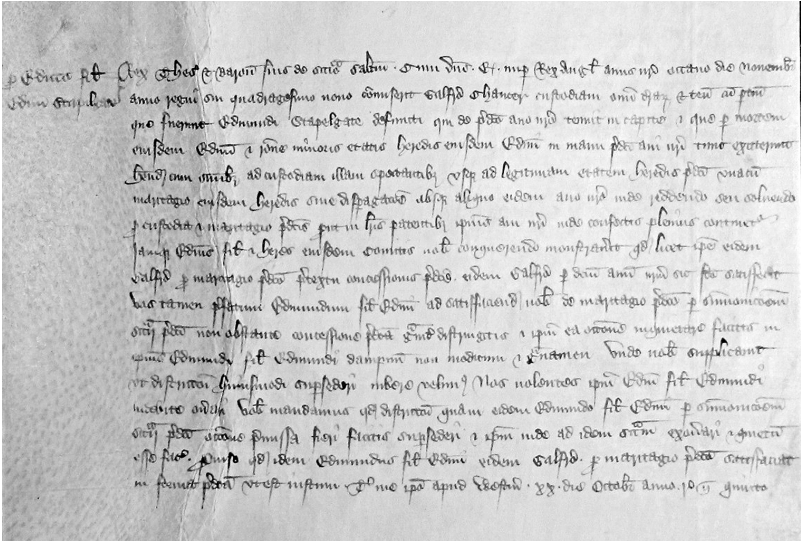 p Edm̄o fil'
Edm̄ Stapilgate
Rex Thes' & Baron' suis de sccio saltm̄ . Cum dn̄s . E . nup Rex Angl' auus nr̄ octauo die Nouembr̄
anno regni sui quadragesimo nono com̄iserit Galfr̄o Chaucer custodiam om̄i terr̄ & ten̄ cū ptin̄
que fuerunt Edmundi Stapelgate defuncti qui de p̄dc̄o auo nr̄o tenuit in capite & que p mortem
eiusdem Edm̄i & rōne minoris etatis heredis eiusdem Edm̄i in manu p̄dc̄i aui nr̄i tunc extiterunt
hend̄ cum om̄ibȝ ad custodiam illam spectantibȝ vsqȝ ad legitimam etatem heredis p̄dc̄i vnacū
maritagio eiusdem heredis sine dispagac̄oe absqȝ aliquo eidem auo nr̄o inde reddendo seu soluendo
p custodia & maritagio p̄dc̄is put in lr̄is patentibȝ ip̄ius aui nr̄i inde confectis plenius continet'
iamqȝ Edm̄us fil' & heres eiusdem nob̄ conquerendo monstrauit qd̄ licet ip̄e eidem
Galfr̄o p maritagio p̄dc̄o p̄textu concessionis p̄dc̄e eidem Galfr̄o p dc̄um auū nr̄m sic fc̄e satisfecit
vos tamen p̄fatum Edmundum fil' Edm̄i ad satisfaciend̄ nob̄ de maritagio p̄dc̄o p sum̄onic̄oem
sccii p̄dc̄i non obstante concessione p̄dc̄a distringitis & ip̄m ea occ̄one inquietare facitis in
ip̄ius Edmundi fil' Edmundi dampnum non modicum & g̃uamen vnde nob̄ supplicauit
vt district̄oem huiusmodi supsederi iubere velimus Nos nolentes ip̄m Edm̄ fil' Edmundi
indebite on̄ari vob̄ mandamus qd̄ district̄oi quam eidem Edmundo fil' Edm̄i p sum̄onic̄oem
sccii p̄dc̄i occ̄one p̄missa fieri facitis supsederi & ip̄m inde ad idem sccm̄ exon̄ari & quietū
esse fac̄ . Prouiso qd̄ idem Edmundus fil' Edm̄i eidem Galfr̄o . p maritagio p̄dc̄o satisfaciat
in forma p̄dc̄a vt est iustum . T' me ip̄o apud Westm̄ . xx . die Octobr̄ anno . r . n . quinto